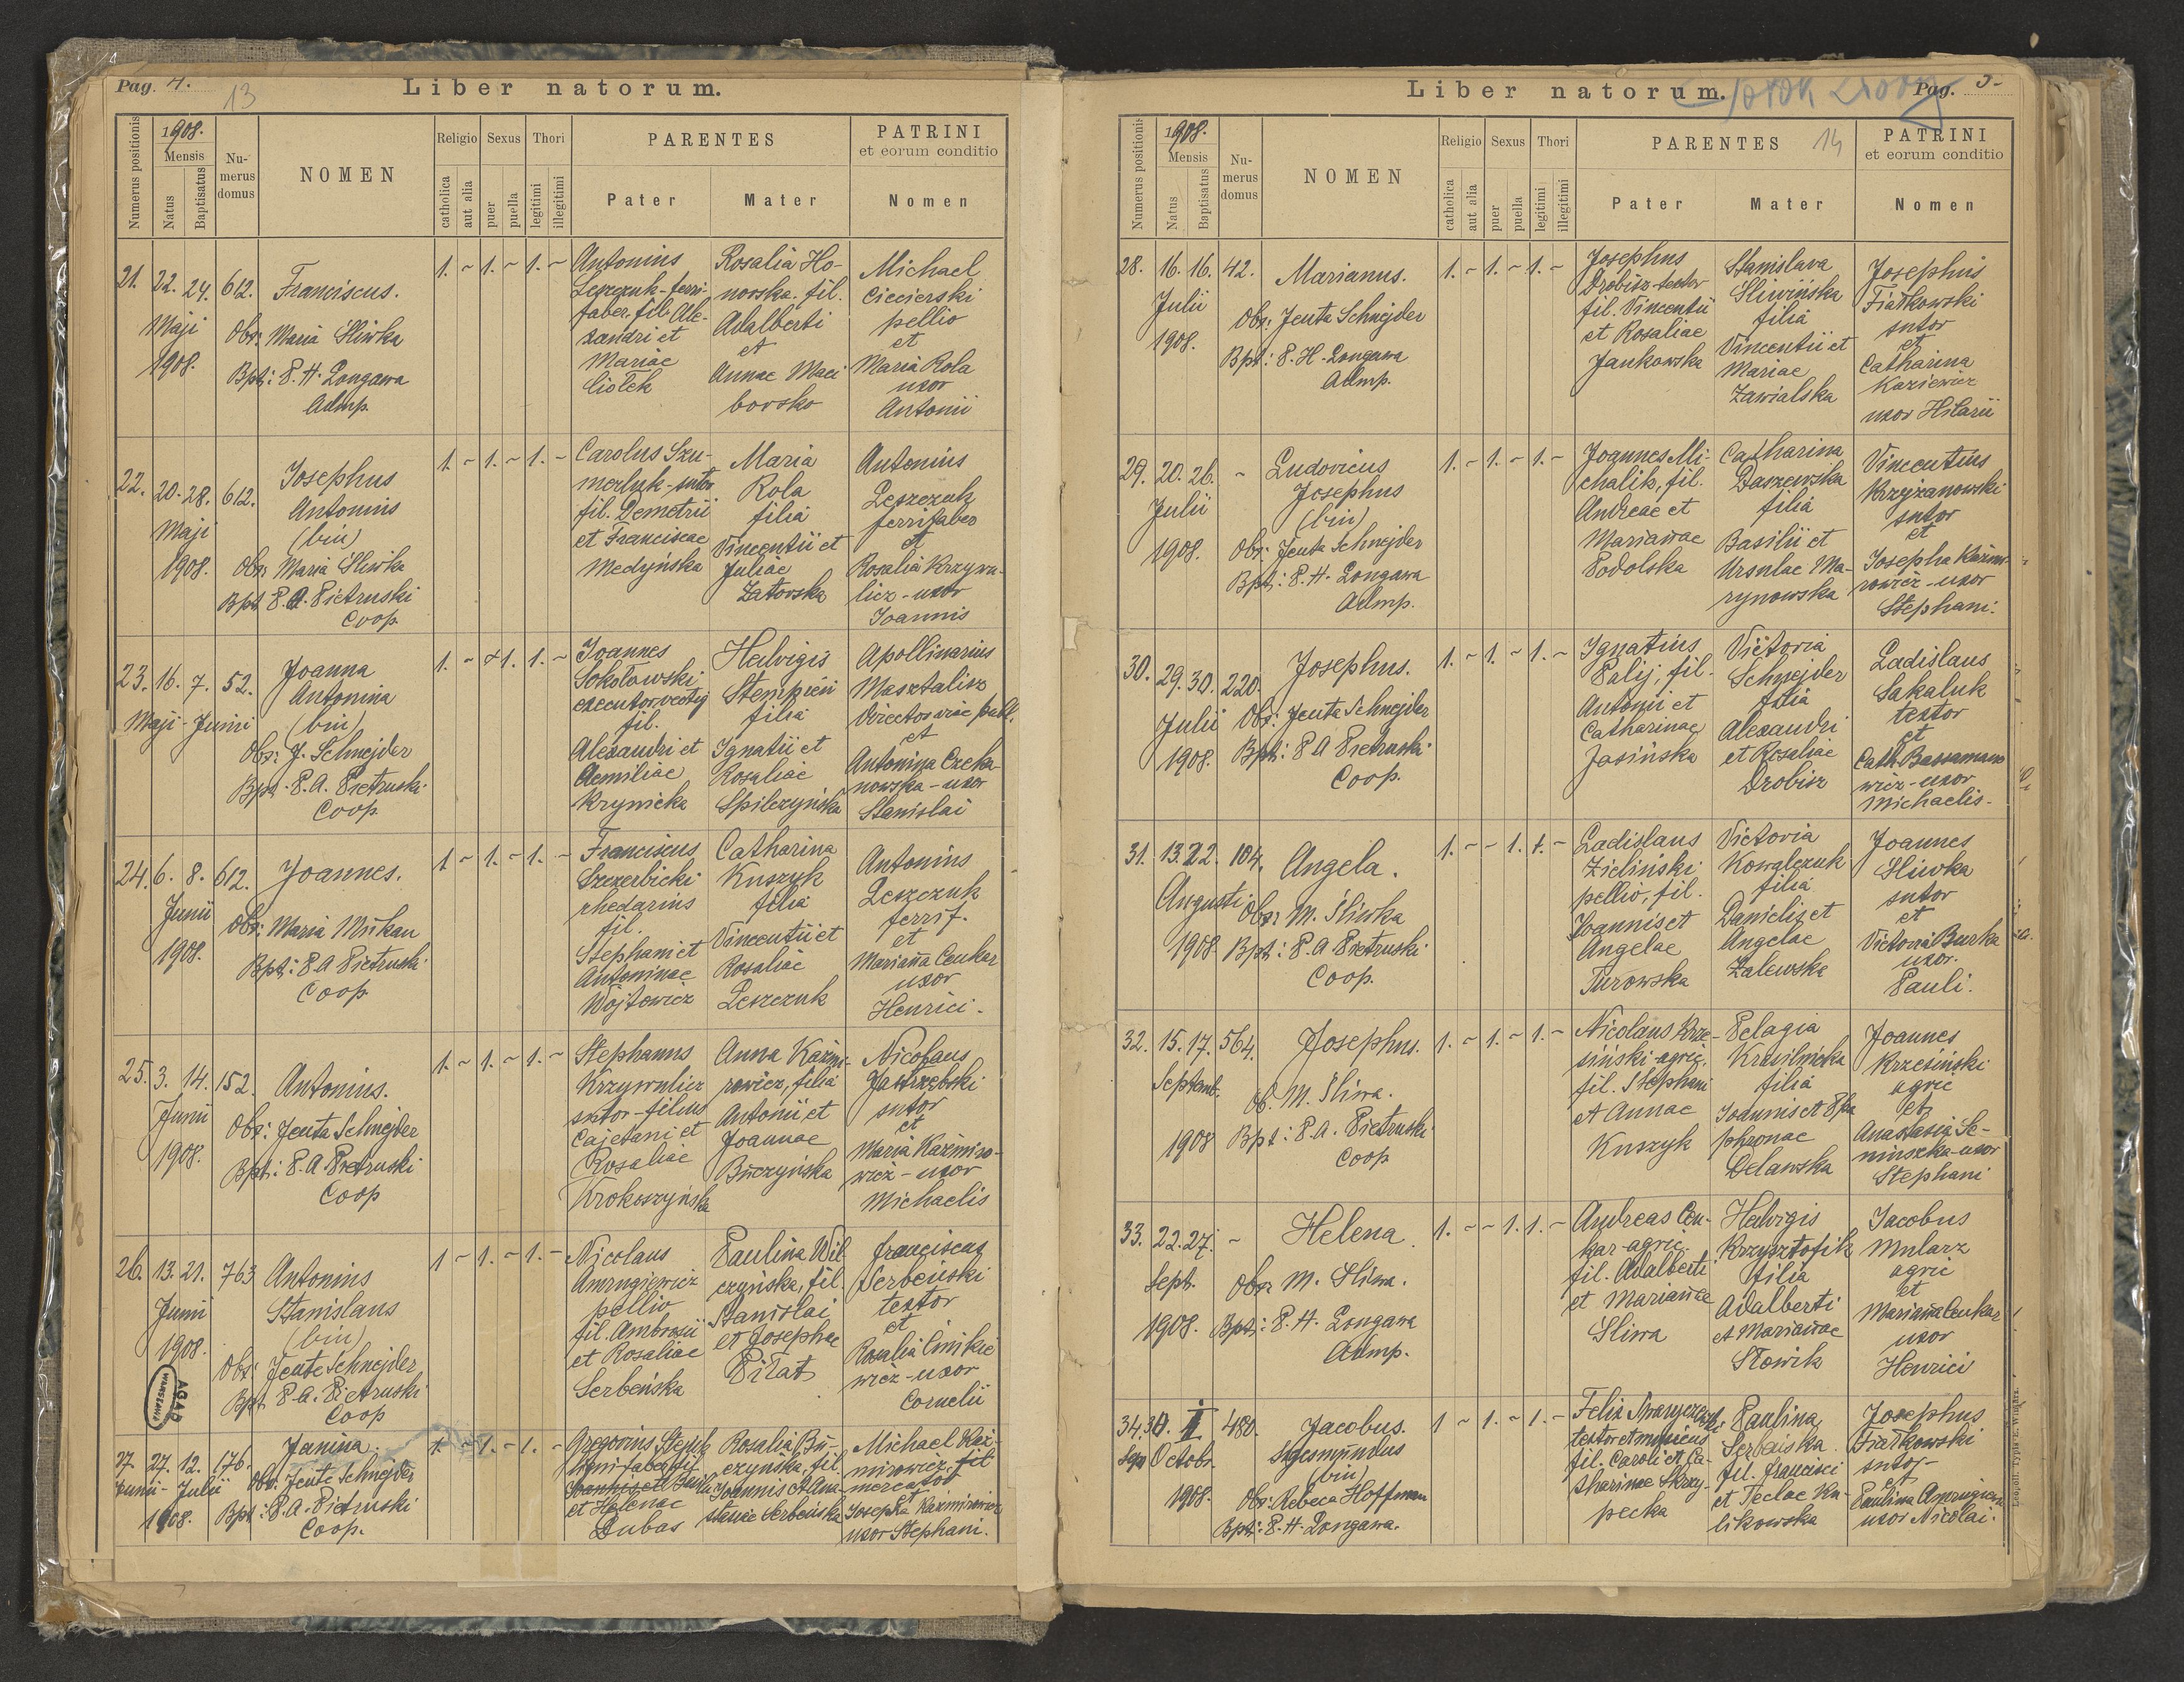 Pag. 4.
13
Liber natorum.
Numerus positionis
1908.
Mensis
Natus
Baptisatus
Nu-
merus
domus
NOMEN
Religio
catholica
aut alia
Sexus
puer
puella
Thori
legitimi
illegitimi
PARENTES
Pater
Mater
PATRINI
et eorum conditio
Nomen
21. 22. 24. 612. Franciscus.
Maji
1908.
Obs: Maria Śliwka
Bpt: P. H. Longawa
Admp.
1. - 1. - 1. -
Antonius
Leszczuk-ferri-
faber. fil. Ale-
xandri et
Mariae
Ciołek
Rosalia Ho-
norska. fil.
Adalberti
et
Annae Maci
borsko
Michael
Ciecierski
pellio
et
Maria Rola
uxor
Antonii
22. 20. 28. 612.
Maji
1908.
Josephus
Antonius
(bin)
Obs: Maria Śliwka
Bpt P. A. Pietruski
Coop
1. - 1. - 1. -
Carolus Szu-
merluk-sutor
fil. Demetrii
et Franciscae
Medyńska
Maria
Rola
filia
Vincentii et
Juliae
Zatorska
Antonius
Leszczuk
ferrifaber
et
Rosalia Krzywu-
licz-uxor
Joannis
23. 16. 7. 52.
Maji - Junii
Joanna
Antonina
(bin)
Obs: J. Schnejder
Bpt. P. A. Pietruski
Coop.
1. - 1. 1. -
Joannes
Sokołowski
executor vectig
fil.
Alexandri et
Aemiliae
Krynicka
Hedvigis
Stempień
filia
Ignatii et
Rosaliae
Spilczyńska
Apollinarius
Masztalisz
Director viae publ.
et
Antonina Czeka-
nowska-uxor
Stanislai
24. 6. 8. 612. Joannes.
Junii
1908.
Obs: Maria Mükan
Bpt: P. A Pietruski
Coop
1 - 1. - 1. -
Franciscus
Szczerbicki
rhedarius
fil.
Stephani et
Antoninae
Wojtowicz
Catharina
Kuszyk
filia
Vincentii et
Rosaliae
Leszczuk
Antonius
Leszczuk
ferrif.
et
Marianna Cenkar
uxor
Henrici.
25. 3. 14. 152. Antonius.
Junii
1908.
Obs: Jenta Schnejder
Bpt: P. A Pietruski
Coop
1. - 1. - 1. -
Stephanus
Krzywulicz
sutor-filius
Cajetani et
Rosaliae
Krokoszyńska
Anna Kaźmi-
rowicz, filia
Antonii et
Joannae
Buczyńska
Nicolaus
Jastrzebski
sutor
et
Maria Kaźmiro-
wicz-uxor
Michaelis
26. 13. 21. 763
Junii
1908.
Antonius
Stanislaus
(bin)
Obs: Jente Schnejder
Bpt. P. A. Pietruski
Coop
1 - 1. - 1. -
Nicolaus
Amrugiewicz
pellio
fil. Ambrosii
et Rosaliae
Serbeńska
Paulina Wil
czyńska, fil.
Stanislai
et Josephae
Piłat
Franciscus
Serbeński
textor
et
Rosalia
wicz-uxor
Cornelii
AGAD
WARSZAWA
27. 27. 12. 176.
Junii - Julii
1908.
Janina.
Obs. Jente Schnejder
Bpt: P. A. Pietruski
Coop.
1. - 1. - 1. -
Gregorius
et Helenae
Dubas
Rosalia Bu-
czyńska, fil.
Joannis et Ana-
stasiae Serbeńska
Michael Kaź-
mirowicz, fil
mercator
Josepha Kazmirowicz
uxor Stephani.
Liber natorum.
Pag. 5-
14
Numerus positionis
1908.
Mensis
Natus
Baptisatus
Nu-
merus
domus
NOMEN
Religio
catholica
aut alia
Sexus
puer
puella
Thori
legitimi
illegitimi
PARENTES
Pater
Mater
PATRINI
et eorum conditio
Nomen
28. 16. 16. 42. Marianus.
Julii
1908.
Obs: Jenta Schnejder
Bpt: P. H. Longawa
Admp.
1. - 1. - 1. -
Josephus
Drobisz-textor
fil. Vincentii
et Rosaliae
Jankowska
Stanislava
Śliwińska
filia
Vincentii et
Mariae
Zawialska
Josephus
Fiałkowski
sutor
et
Catharina
Kaziewicz
uxor Hilarii
29. 20. 26. -
Julii
1908.
Ludovicus
Josephus
(bin)
Obs: Jenta Schnejder
Bpt: P. H. Longawa
Admp.
1. - 1. - 1. -
Joannes Mi-
chalik, fil.
Andreae et
Mariannae
Podolska
Catharina
Daszewska
filia
Basilii et
Ursulae Ma-
rynowska
Vincentius
Krzyżanowski
sutor
et
Josepha Kaźmi-
rowicz-uxor
Stephani.
30. 29. 30. 220. Josephus.
Julii
1908.
Obs: Jenta Schnejder
Bpt: P. A Pietruski
Coop.
1. - 1. - 1. -
Ignatius
Palij, fil.
Antonii et
Catharinae
Jasińska
Victoria
Schnejder
filia
Alexandri
et Rosaliae
Drobisz
Ladislaus
Sakaluk
textor
et
Cath. Bassaman
wicz-uxor
Michaelis.
31. 13. 22. 104. Angela.
Augusti
1908.
Obs: M. Śliwka
Bpt: P. A Pietruski
Coop.
1. - - 1. 1. -
Ladislaus
Zieliński
pellio, fil.
Joannis et
Angelae
Turowska
Victoria
Kowalczuk
filia
Danielis et
Angelae
Zalewska
Joannes
Śliwka
sutor
et
Victoria Burka
uxor.
Pauli.
32. 15. 17. 564. Josephus.
Septemb.
1908
Ob. M. Śliwa.
Bpt: P. A. Pietruski
Coop
1. - 1. - 1. -
Nicolaus Krze-
siński-agric.
fil. Stephani
et Annae
Kuszyk
Pelagia
Krasilnicka
filia
Joannis et
phronae
Delawska
Joannes
Krzesiński
agric
et
Anastasia Se-
niuszka-uxor
Stephani
33. 22. 27. - Helena.
Sept.
1908.
Obs M. Śliwa.
Bpt: P. H. Longawa
Admp.
1. - - 1. 1. -
Andreas Cen-
kar-agric.
fil. Adalberti
et Mariannae
Śliwa
Hedvigis
Krzysztofik
filia
Adalberti
et Mariannae
Słowik
Jacobus
Mularz
agric
et
Marianna Cenkar
uxor
Henrici
34. 30. I 480.
Sept Octobr.
1908.
Jacobus.
Sigismundus
(bin)
Obs: Rebeca Hoffman
Bpt: P. H. Longawa.
1 - 1. - 1. -
Felix
textor et musicus
fil. Caroli et Ca-
tharinae Skrzy-
pecka
Paulina
Serbeńska
fil. Francisci
et Teclae Ku-
likowska
Josephus
Fiałkowski
sutor-
et
Paulina Amrugiewicz
uxor Nicolai.